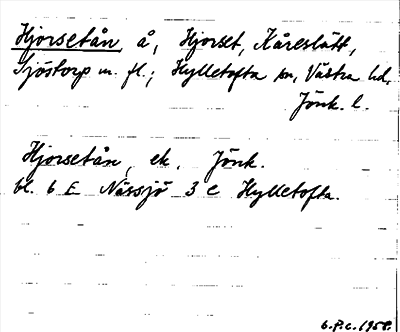 Hjorsetån, å, Hjorset, Kåreslätt,
Sjöstorp m. fl.; Hylletofta sn, Västra hd,
Jönk. l.
Hjorsetån, ek. Jönk.
bl. 6 E Nässjö 3 e Hylletofta.
G.P.c. 1958.